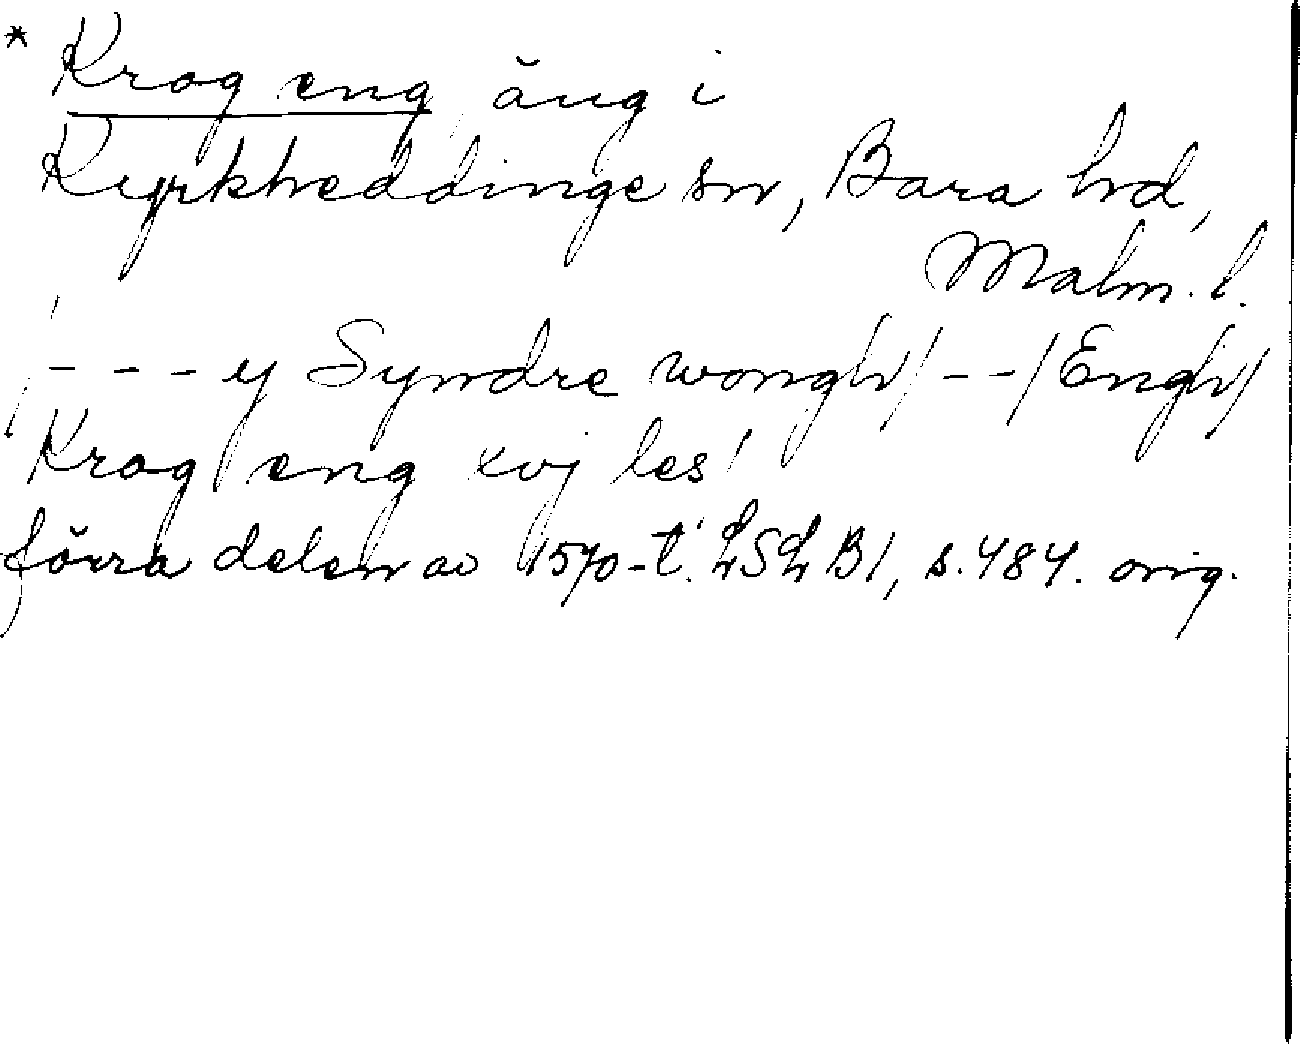 * Krog eng äng i
Kyrkheddinge sn, Bara hd,
Malm. l.
- - - y Syndre wongh/ - - / Engh/
Krog eng xvj les
förra delen av 1570-t. LSL B1, s. 484. orig.